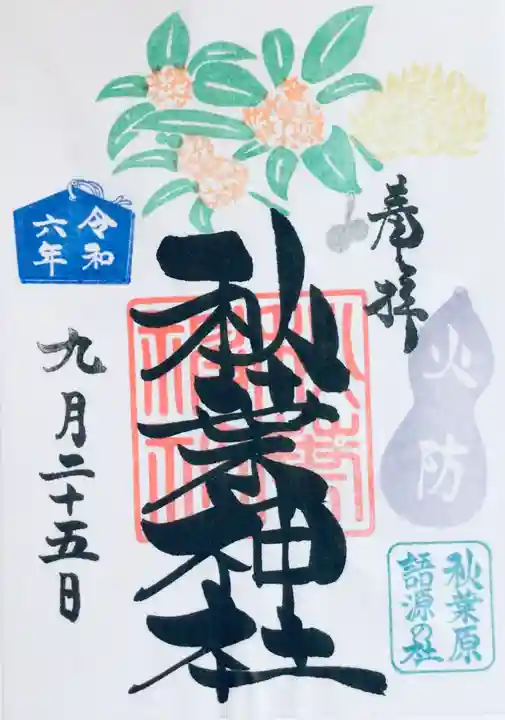 奉拝
火防
秋葉原
語源の社
秋葉神社
秋葉
神社
令和
六年
九月二十五日